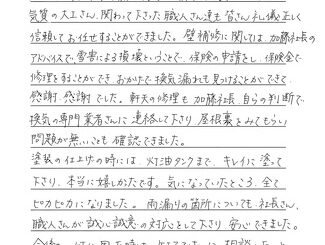 気質の大工さん、関わって下さた職人さん達も皆さん礼儀正しく
信頼してお任せすることができました。壁補修に関しては加藤社長の
アドバイスで、雪害による損壊ということで、保険の申請をし、保険金で
修理をすることができ、おかげで換気漏れも見つけることができて
感謝、感謝でした。軒天の修理も加藤社長自らの判断で
換気の専門業者さんに連絡して下さり、屋根裏をみてもらい
問題が無いことも確認できました。
塗装の仕上げの時には、灯油タンクまで、キレイに塗って
下さり、本当に嬉しかったです。気になっていたところ、全て
ピカピカになりました。雨漏りの箇所についても、社長さん、
職人さんが誠心誠意の対応をして下さり、安心できました。